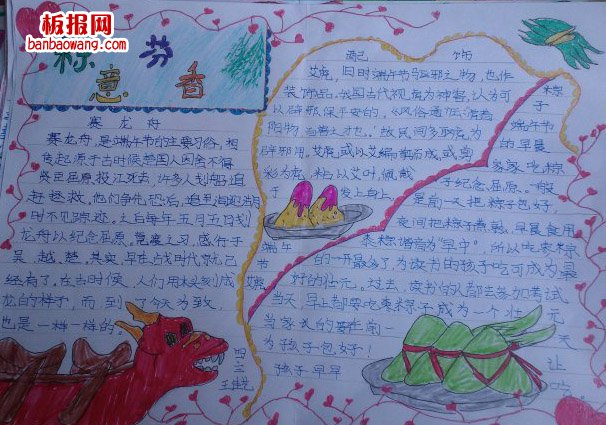 板报网
banbaowang.com
粽 芬
意 香
赛龙舟
赛龙舟,是端午节的主要习俗,相
传起源于古时候楚国人因舍不得
贤臣屈原投江死去,许多人划船追
赶拯救。他们争先恐后,追至洞庭湖
时不见踪迹。之后每年五月五日划
龙舟以纪念屈原。竞渡之习,盛行于
吴、越、楚。其实,早在战国时代就已
经有了。在古时候,人们用木头刻成
龙的样子,而到了今天为致,
也是一样一样的。
四三
配饰
艾虎,旧时端午节驱邪之物,也作
装饰品。我国古代视虎为神兽,认为可
以辟邪保平安的。《风俗通》
阴物,
故民间多取虎为
辟邪用。艾虎,或以艾编剪而成,或剪
彩为虎,粘以艾叶,佩戴
于发上身上。
粽子
端午节
的早晨
家家吃粽
子纪念屈原。一般
是前一天把粽子包好,
夜间把粽子煮熟,早晨食用
枣粽谐音为“早中”,所以吃枣粽
的
最多了,为读书的孩子吃可成为
的状元。过去,读书的人都去参加考试
当天,早上都要吃枣粽子成为一个状元
当家长的要在前一天
为孩子包好!让
孩子早早吃。
端午节
艾